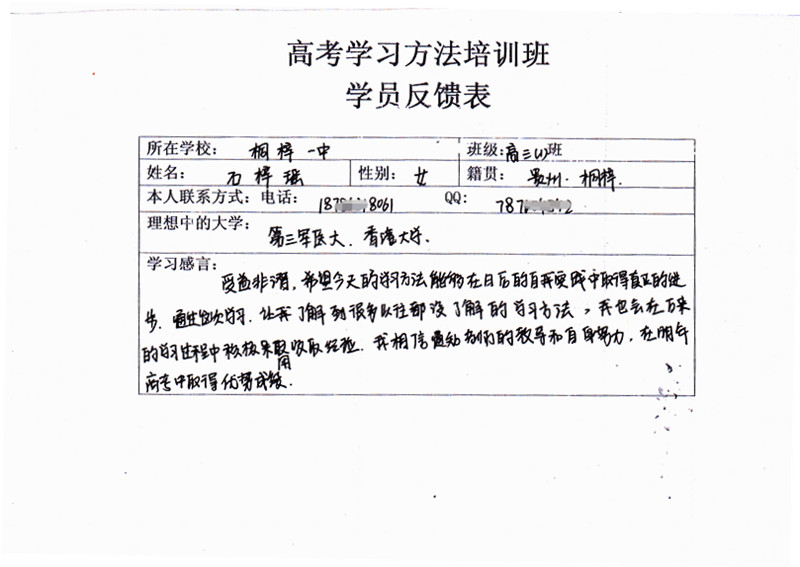 高考学习方法培训班
学员反馈表
所在学校: 桐梓一中 班级:高三(1)班
姓名: 石梓瑶 性别: 女 籍贯: 贵州.桐梓.
本人联系方式:电话: 187 8061 QQ: 787
理想中的大学: 第三军医大、香港大学.
学习感言:
受益非浅,希望今天的学习方法能够在日后的自我实践中取得真正的进
步.通过这次学习.让我了解到很多以往都没了解的学习方法,我也会在万来
的学习过程中积极采取吸取经验.我相信通知 们的教导和自身努力,在明年
用
高考中取得优势成绩.